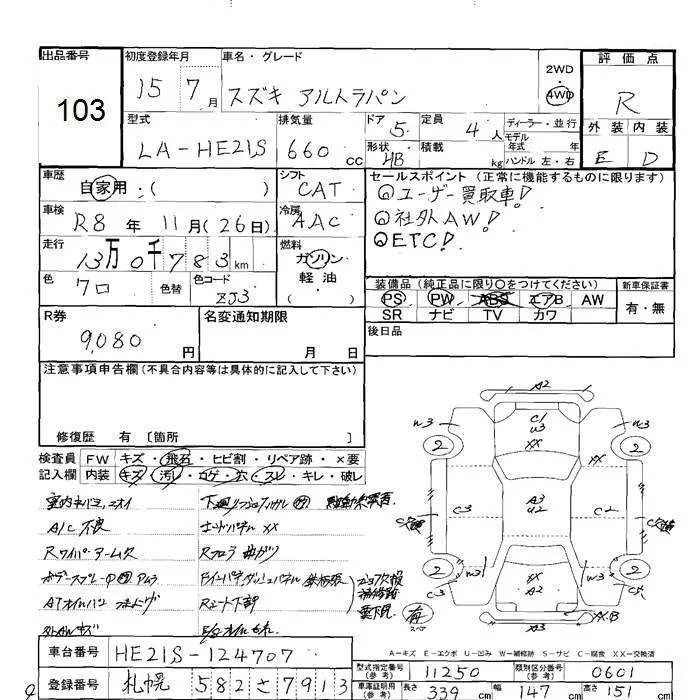 出品番号
103
初度登録年月
15 7月
車名・グレード
スズキ アルトラパン
2WD
・
4WD
評価点
R
外装 内装
E D
型式
LA-HE21S
排気量
660cc
ドア 5
形状 HB
定員 4人
積載 kg
ディーラー・並行
モデル
年式 年
ハンドル 左・右
車歴
自家用:( )
シフト
CAT
車検
R8年 11月(26日)
冷房
AAC
走行
13万0千783km
燃料
ガソリン
軽油
( )
色
クロ
色替
色コード
ZJ3
セールスポイント(正常に機能するものに限ります)
◎ユーザー買取車!
◎社外AW!
◎ETC!
装備品(純正品に限り○をつけてください)
PS PW ABS エアB AW
SR ナビ TV カワ
新車保証書
有・無
後日品
R券
9,080円
名変通知期限
月 日
注意事項申告欄(不具合内容等は具体的に記入して下さい)
修復歴 有 〔箇所 〕
検査員
記入欄
FW キズ・飛石・ヒビ割・リペア跡・×要
内装 キズ・汚レ・コゲ・穴・スレ・キレ・破レ
A/C 不良
Rワイパーアームサ
エンドパネル XX
Rフロア 曲がり
Rシート下部
社外AWキズ
有
スペア
A2
W3
C1
U3
XX
W3
2
2
XX
C3
A3
U2
C2
W3
W3
2
2
C3
XX
A2
A3
XXB
A-キズ E-エクボ U-凹み W-補修跡 S-サビ C-腐食 XX-交換済
車台番号
HE21S-124707
登録番号
札幌 582 さ 7913
型式指定番号
(参考)
11250
類別区分番号
(参考)
0601
車庫証明用
(参考)
長さ 339cm
幅 147cm
高さ 151cm